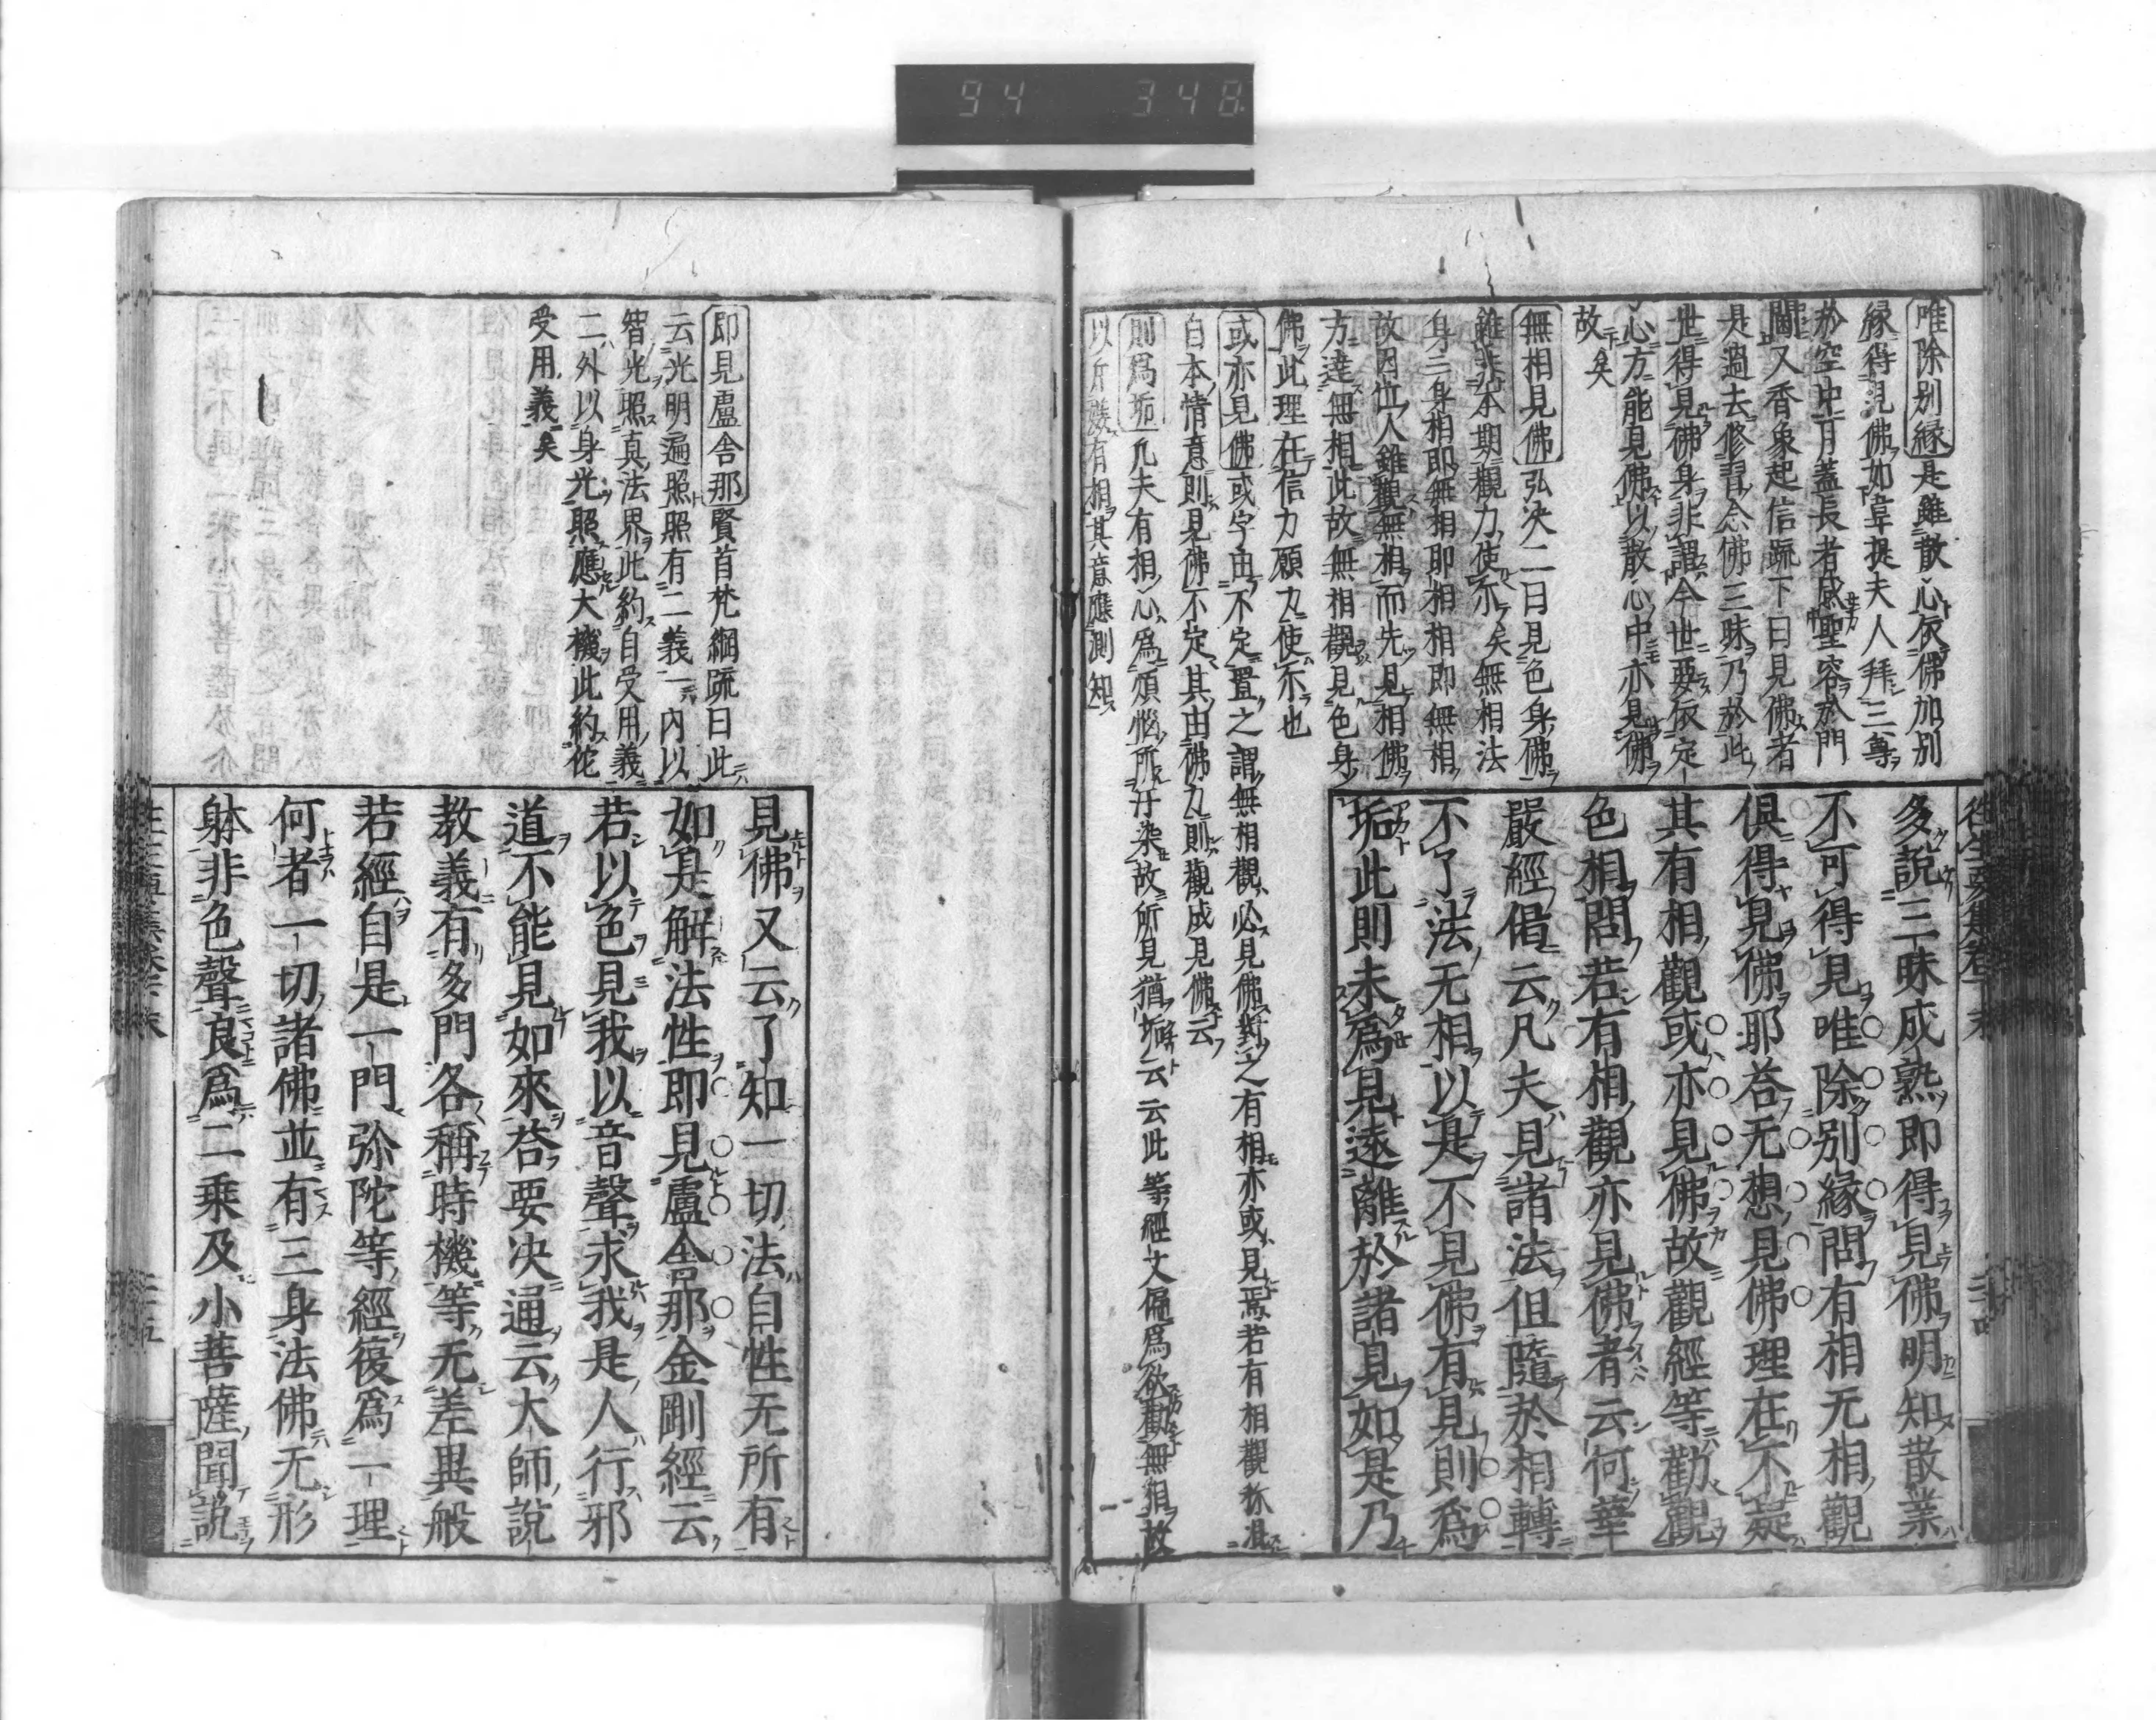 94 348
唯除別縁是雖散心依佛加別
縁得見佛如韋提夫人拜三尊
於空中月蓋長者感聖容於門
閫又香象起信疏下曰見佛者
是過去修習念佛三昧乃於此
世得見佛身非謂今世要依定
心方能見佛以散心中亦見佛
故矣
無相見佛弘決二曰見色身佛
雖非本期觀力使尓矣無相法
身三身相即無相即相相即無相
故因位人雖觀無相而先見相佛
方達無相此故無相觀見色身
佛此理在信力願力使尓也
或亦見佛或字由不定置之謂無相觀必見佛對之有相亦或見焉若有相觀
自本情意則見佛不定其由佛力則觀成見佛云
則爲垢凡夫有相心爲煩惱所汙染故所見猶垢云云此等經文偏爲欲勸無相故
以斥變有相其意應測知
往生要集卷下末
多說三昧成熟即得見佛明知散業
不可得見唯除別縁問有相无相觀
俱得見佛耶荅无想見佛理在不疑
其有相觀或亦見佛故觀經等勸觀
色相問若有相觀亦見佛者云何華
嚴經偈云凡夫見諸法但隨於相轉
不了法无相以是不見佛有見則爲
垢此則未爲見遠離於諸見如是乃
即見盧舍那賢首梵綱疏曰此
云光明遍照照有二義一內以
智光照真法界此約自受用義
二外以身光照應大機此約佗
受用義矣
見佛又云了知一切法自性无所有
如是解法性即見盧舍那金剛經云
若以色見我以音聲求我是人行邪
道不能見如來荅要決通云大師說
教義有多門各稱時機等无差異般
若經自是一門弥陀等經復爲一理
何者一切諸佛並有三身法佛无形
躰非色聲良爲二乗及小菩薩聞說